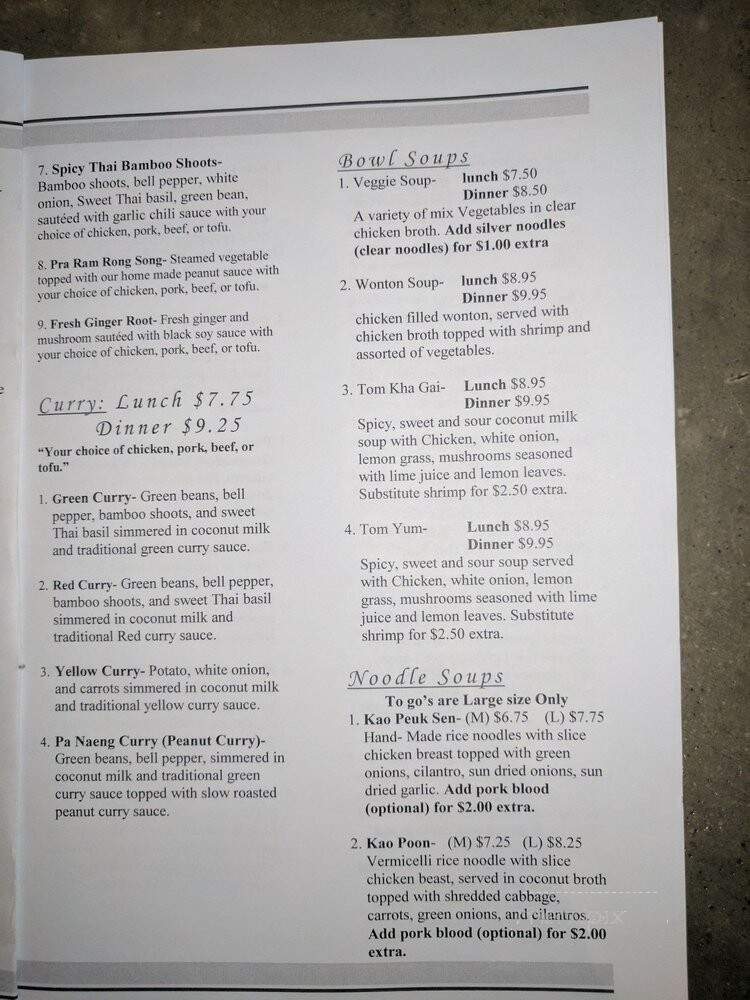 7. Spicy Thai Bamboo Shoots-
Bamboo shoots, bell pepper, white
onion, Sweet Thai basil, green bean,
sautéed with garlic chili sauce with your
choice of chicken, pork, beef, or tofu.
8. Pra Ram Rong Song- Steamed vegetable
topped with our home made peanut sauce with
your choice of chicken, pork, beef, or tofu.
9. Fresh Ginger Root- Fresh ginger and
mushroom sautéed with black soy sauce with
your choice of chicken, pork, beef, or tofu.
Curry: Lunch $7.75
Dinner $9.25
“Your choice of chicken, pork, beef, or
tofu.”
1. Green Curry- Green beans, bell
pepper, bamboo shoots, and sweet
Thai basil simmered in coconut milk
and traditional green curry sauce.
2. Red Curry- Green beans, bell pepper,
bamboo shoots, and sweet Thai basil
simmered in coconut milk and
traditional Red curry sauce.
3. Yellow Curry- Potato, white onion,
and carrots simmered in coconut milk
and traditional yellow curry sauce.
4. Pa Naeng Curry (Peanut Curry)-
Green beans, bell pepper, simmered in
coconut milk and traditional green
curry sauce topped with slow roasted
peanut curry sauce.
Bowl Soups
1. Veggie Soup- lunch $7.50
Dinner $8.50
A variety of mix Vegetables in clear
chicken broth. Add silver noodles
(clear noodles) for $1.00 extra
2. Wonton Soup- lunch $8.95
Dinner $9.95
chicken filled wonton, served with
chicken broth topped with shrimp and
assorted of vegetables.
3. Tom Kha Gai- Lunch $8.95
Dinner $9.95
Spicy, sweet and sour coconut milk
soup with Chicken, white onion,
lemon grass, mushrooms seasoned
with lime juice and lemon leaves.
Substitute shrimp for $2.50 extra.
4. Tom Yum- Lunch $8.95
Dinner $9.95
Spicy, sweet and sour soup served
with Chicken, white onion, lemon
grass, mushrooms seasoned with lime
juice and lemon leaves. Substitute
shrimp for $2.50 extra.
Noodle Soups
To go's are Large size Only
1. Kao Peuk Sen- (M) $6.75 (L) $7.75
Hand- Made rice noodles with slice
chicken breast topped with green
onions, cilantro, sun dried onions, sun
dried garlic. Add pork blood
(optional) for $2.00 extra.
2. Kao Poon- (M) $7.25 (L) $8.25
Vermicelli rice noodle with slice
chicken beast, served in coconut broth
topped with shredded cabbage,
carrots, green onions, and cilantros.
Add pork blood (optional) for $2.00
extra.